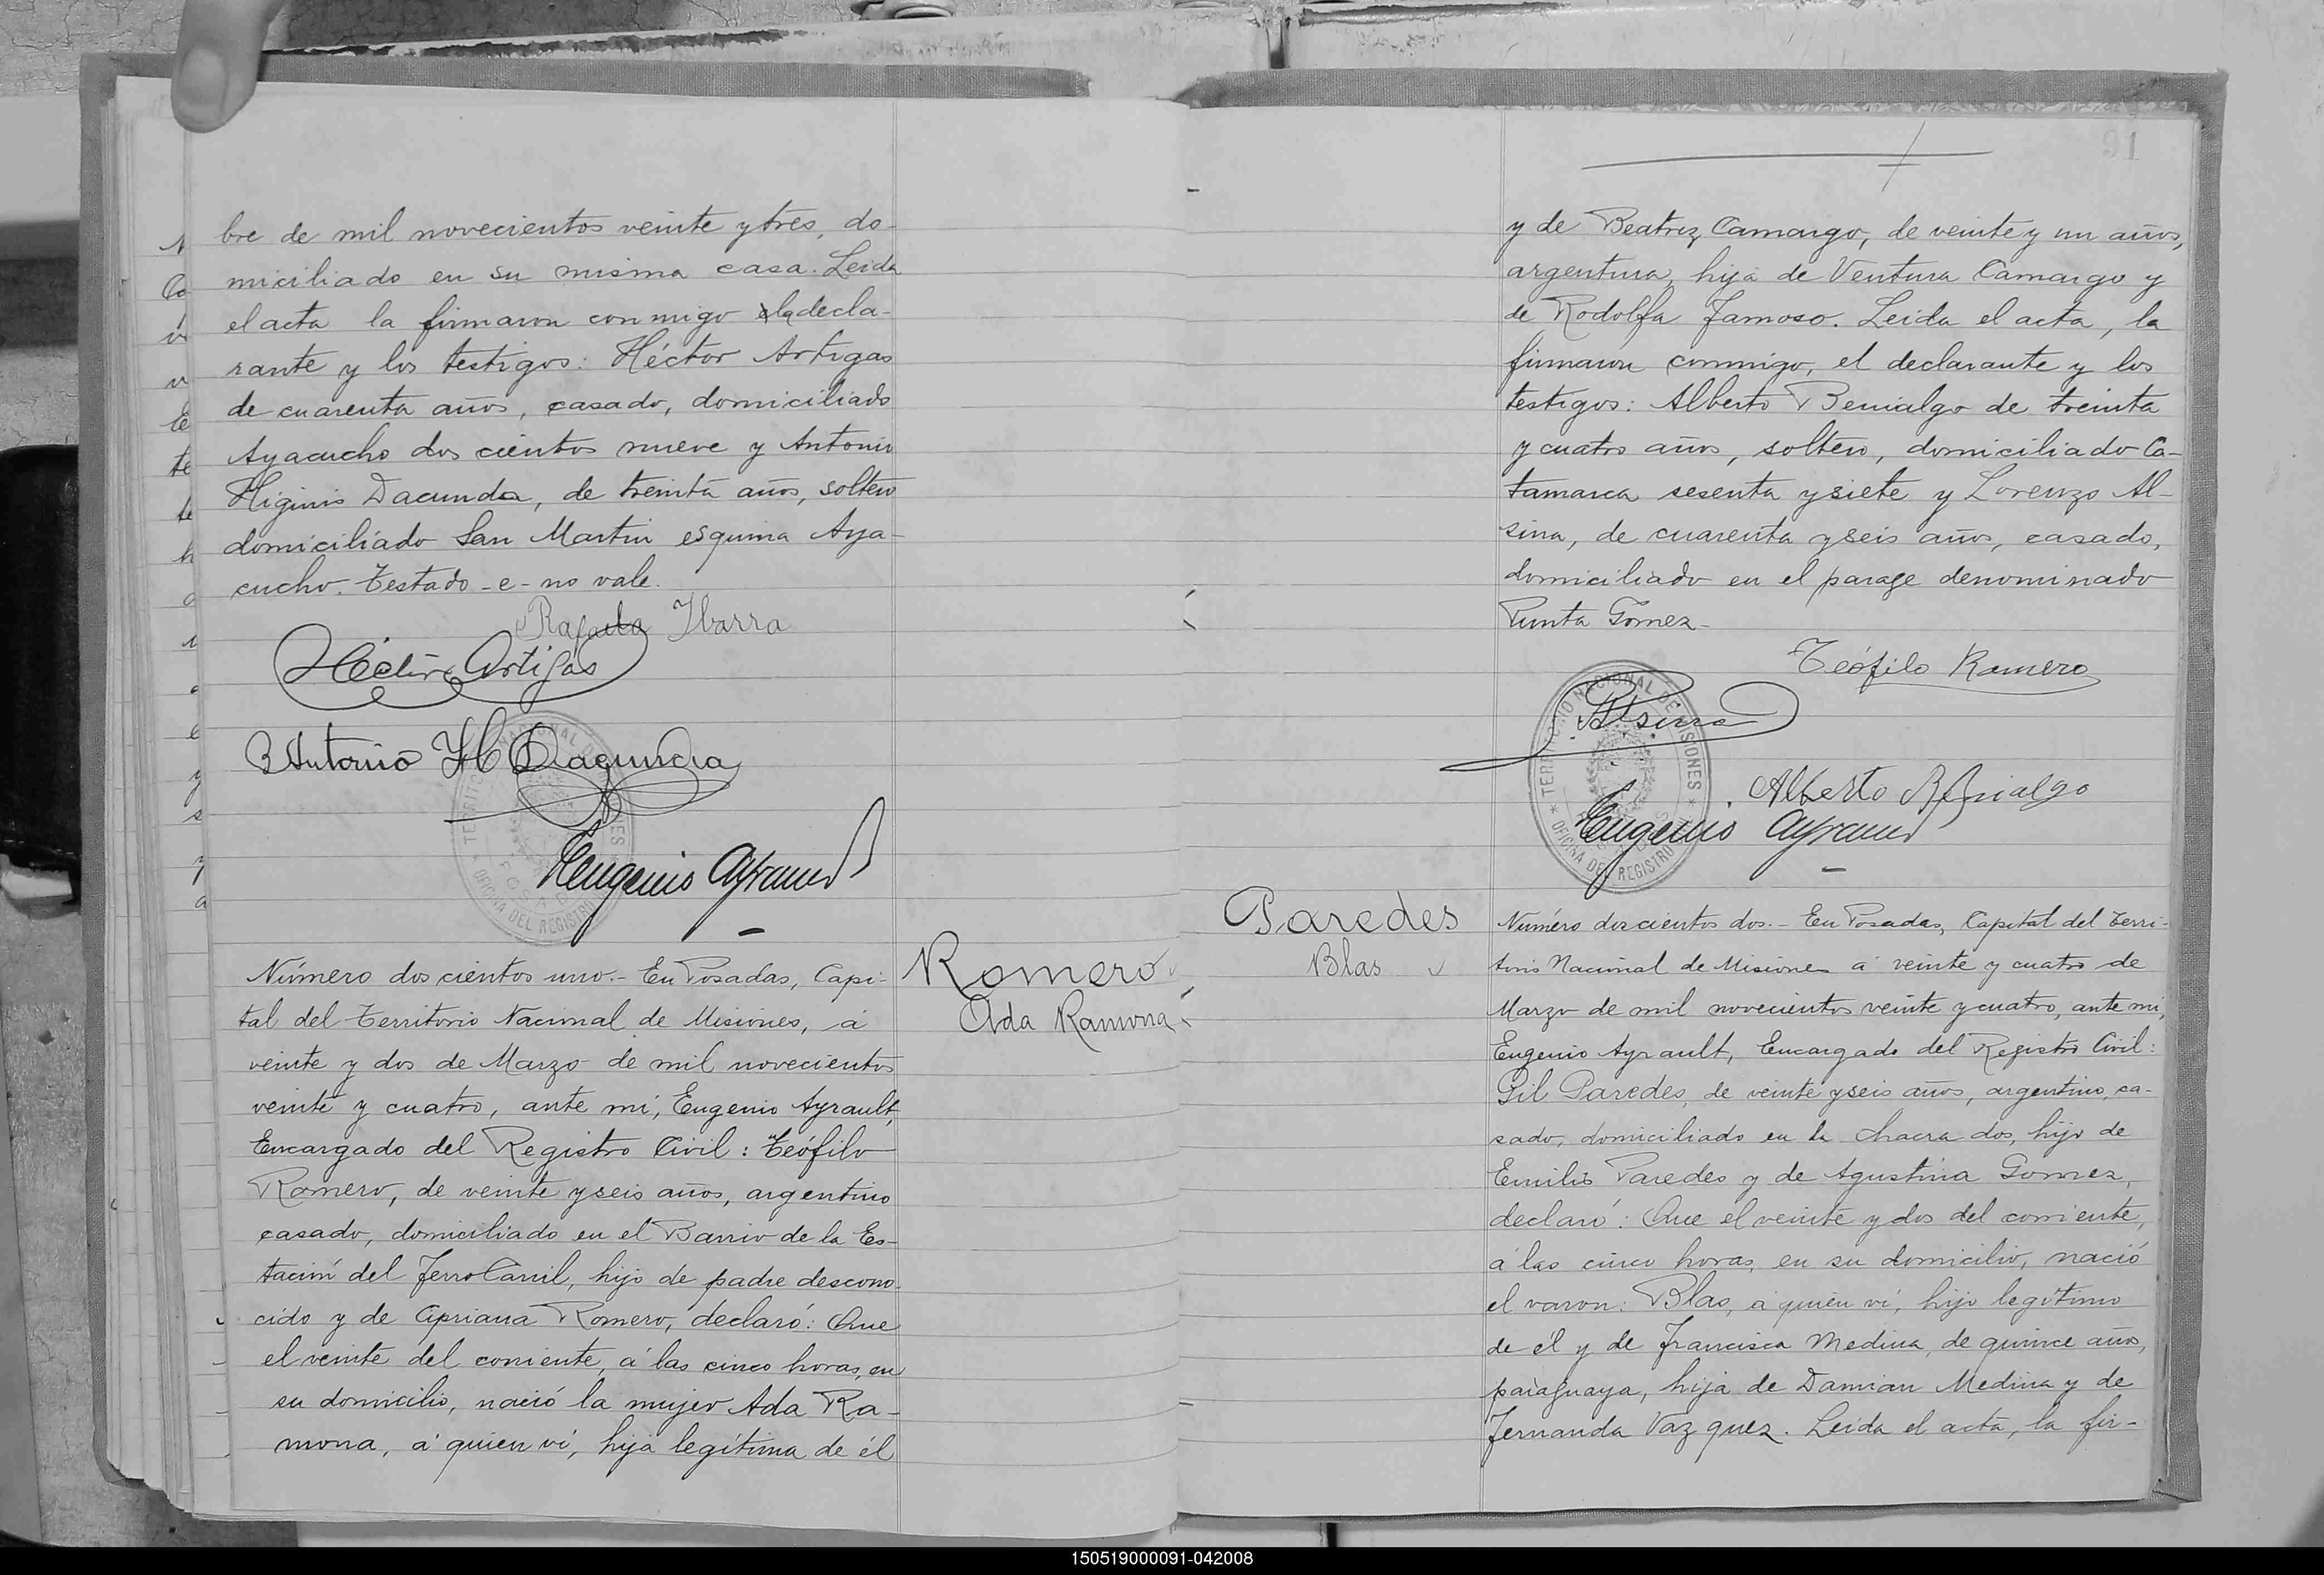 bre de mil novecientos veinte y tres, do-
miciliado en su misma casa. Leida
el acta la firmaron conmigo e la decla-
rante y los testigos: Héctor Artigas
de cuarenta años, casado, domiciliado
Ayacucho dos cientos nueve y Antonio
Higinio Dacunda, de treinta años, soltero
domiciliado San Martin esquina Aya-
cucho. Testado - e - no vale.
Rafaela Ibarra
Héctor Artigas
Antonio H Dacunda
Eugenio Ayrault
Romero
Ada Ramona
Número dos cientos uno.- En Posadas, Capi-
tal del Territorio Nacional de Misiones, á
veinte y dos de Marzo de mil novecientos
veinte y cuatro, ante mí, Eugenio Ayrault,
Encargado del Registro Civil: Teófilo
Romero, de veinte y seis años, argentino
casado, domiciliado en el Barrio de la Es-
tación del FerroCarril, hijo de padre descono-
cido y de Cipriana Romero, declaró: Que
el veinte del corriente, á las cinco horas, en
su domicilio, nació la mujer Ada Ra-
mona, á quien ví, hija legítima de él
91
y de Beatriz Camargo, de veinte y un años,
argentina, hija de Ventura Camargo y
de Rodolfa Famoso. Leida el acta, la
firmaron conmigo, el declarante y los
testigos: Alberto Benialgo de treinta
y cuatro años, soltero, domiciliado Ca-
tamarca sesenta y siete y Lorenzo Al-
sina, de cuarenta y seis años, casado,
domiciliado en el parage denominado
Punta Gomez-
Teófilo Romero
Alsina
TERRITORIO NACIONAL DE MISIONES * OFICINA DEL REGISTRO
Alberto Benialgo
Eugenio Ayrault
Paredes
Blas
Número dos cientos dos.- En Posadas, Capital del Terri-
torio Nacional de Misiones á veinte y cuatro de
Marzo de mil novecientos veinte y cuatro, ante mí,
Eugenio Ayrault, Encargado del Registro Civil:
Gil Paredes, de veinte y seis años, argentino, ca-
sado, domiciliado en la chacra dos, hijo de
Emilio Paredes y de Agustina Gomez,
declaró: Que el veinte y dos del corriente,
á las cinco horas, en su domicilio, nació
el varon: Blas, á quien ví, hijo legítimo
de él y de Francisca Medina, de quince años,
paraguaya, hija de Damian Medina y de
Fernanda Vazquez. Leida el acta, la fir-
150519000091-042008